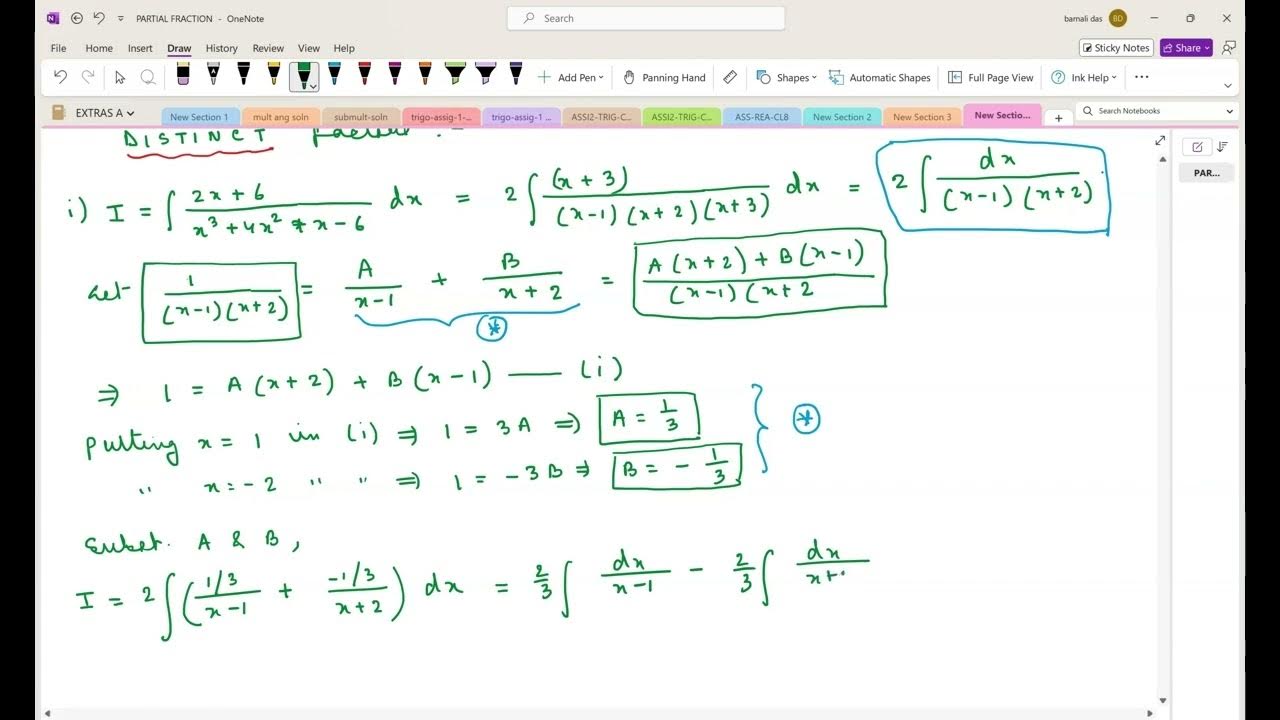 PARTIAL FRACTION - OneNote
Search
barnali das BD
File Home Insert Draw History Review View Help
Sticky Notes Share
Add Pen Panning Hand Shapes Automatic Shapes Full Page View Ink Help
EXTRAS A New Section 1 mult ang soln submult-soln trigo-assig-1-... trigo-assig-1 ... ASSI2-TRIG-C... ASSI2-TRIG-C... ASS-REA-CL8 New Section 2 New Section 3 New Sectio... + Search Notebooks
PAR...
DISTINCT Factors :-
i) I = ∫ (2x + 6)/(x³ + 4x² + x - 6) dx = 2 ∫ (x + 3)/((x-1)(x+2)(x+3)) dx = 2 ∫ dx/((x-1)(x+2))
Let 1/((x-1)(x+2)) = A/(x-1) + B/(x+2) = (A(x+2) + B(x-1))/((x-1)(x+2
*
⇒ 1 = A(x+2) + B(x-1) —— (i)
Putting x = 1 in (i) ⇒ 1 = 3A ⇒ A = 1/3
*
" x = -2 " " ⇒ 1 = -3B ⇒ B = - 1/3
Subst. A & B,
I = 2 ∫ ((1/3)/(x-1) + (-1/3)/(x+2)) dx = 2/3 ∫ dx/(x-1) - 2/3 ∫ dx/(x+